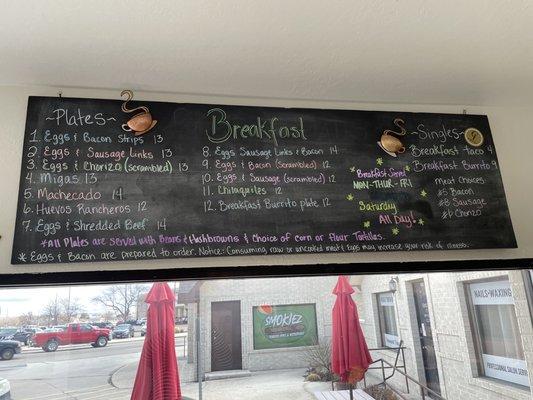 ~Plates~
1. Eggs & Bacon Strips 13
2 Eggs & Sausage Links 13
3. Eggs & Chorizo (scrambled) 13
4. Migas 13
5 Machecado 14
6. Huevos Rancheros 12
7. Eggs & Shredded Beef 14
Breakfast
8. Eggs Sausage Links & Bacon 14
9. Eggs & Bacon (scrambled) 12
10. Eggs & Sausage (scrambled) 12
11. Chilaquiles 12
12. Breakfast Burrito plate 12
Breakfast Served
MON-THUR-FRI
Saturday
All Day!
~Singles~
Breakfast Taco 4
Breakfast Burrito 9
Meat Choices
Bacon
Sausage
Chorizo
*All Plates are served with Beans & Hashbrowns & Choice of corn or flour Tortillas.
* Eggs & Bacon are prepared to order. Notice: Consuming raw or uncooked meat & eggs may increase your risk of illness.
SMOKIEZ
NAILS-WAXING
PROFESSIONAL